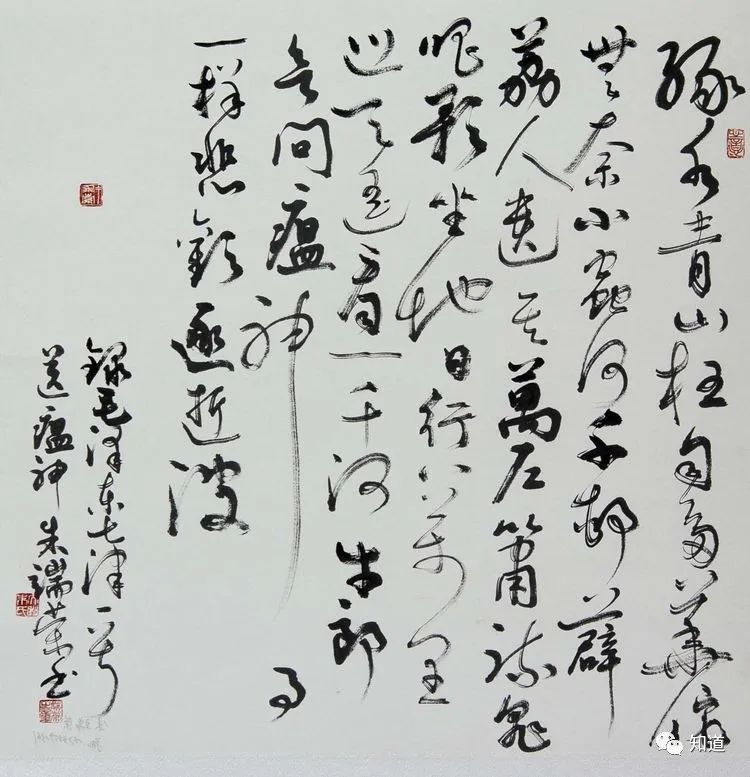 綠水青山枉自多華佗
無奈小蟲何千邨薜
荔人遺矢萬戶簫疏鬼
唱歌坐地日行八万里
巡天遥看一千河牛郎
欲問瘟神事
一样悲歡逐逝波
錄毛泽东七律一首
送瘟神 朱端荣书
知道